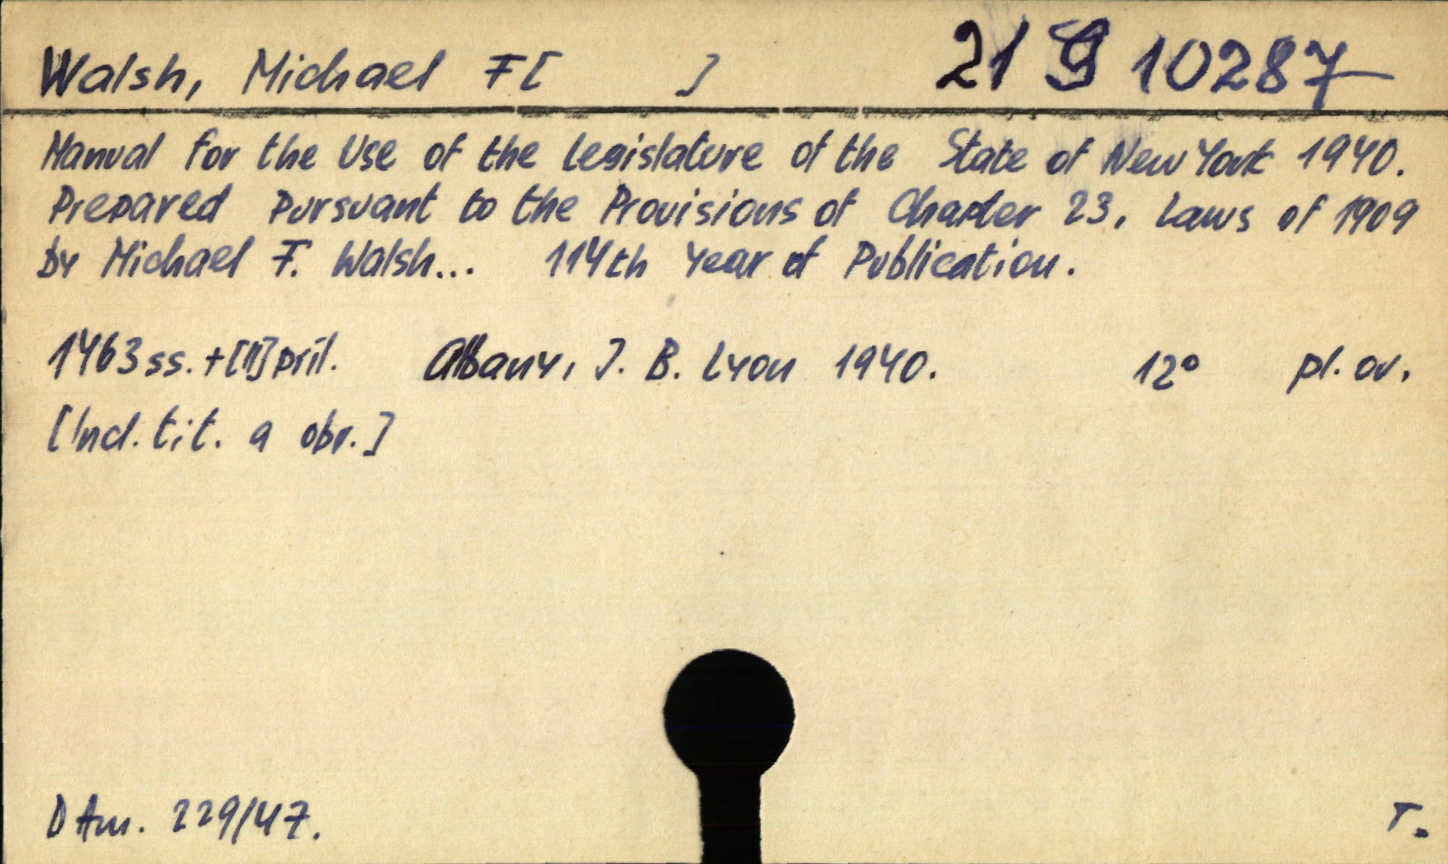 Walsh, Michael F[ ] 21 G 10287
Manual for the Use of the Legislature of the State of New York 1940.
Prepared Pursuant to the Provisions of Chapter 23, Laws of 1909
by Michael F. Walsh... 114th Year of Publication.
1463 ss. + [1] příl. Albany, J. B. Lyon 1940. 12° pl. ov.
[Incl. tit. a obr.]
D Am. 229/47. T.